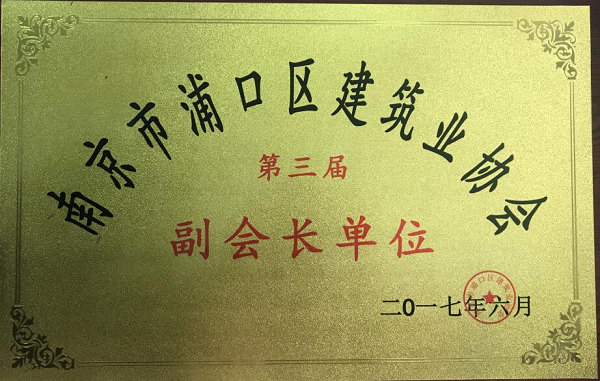 南京市浦口区建筑业协会
第三届
副会长单位
二0一七年六月